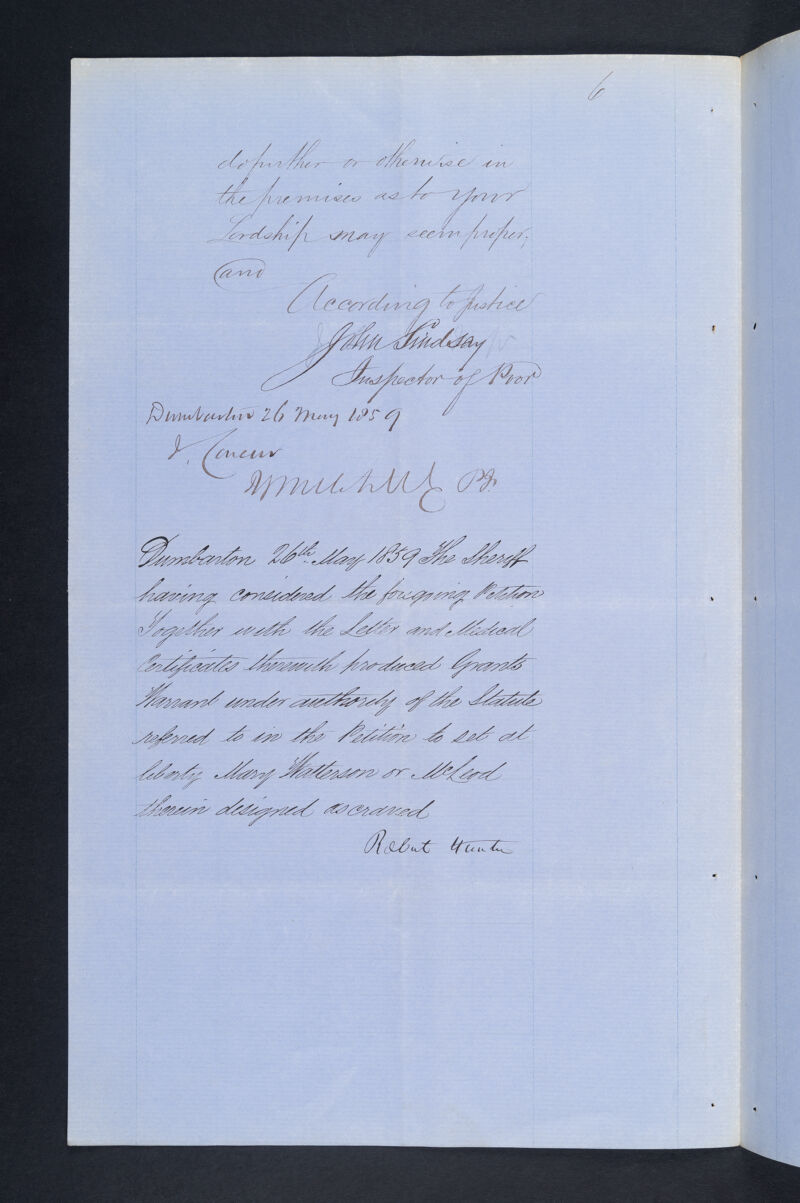 6
do further or otherwise in
the premises as to your
Lordship may seem proper;
and
According to Justice
John Lindsay
Inspector of Poor
Dumbarton 26 May 1859
I. Concur
P.F.
Dumbarton 26th May 1859 The Sheriff
having considered the foregoing Petition
Together with the Letter and Medical
Certificates therewith produced Grants
Warrant under authority of the Statute
referred to in the Petition to set at
liberty Mary Watterson or McLeod
therein designed as craved
Robert Hunter